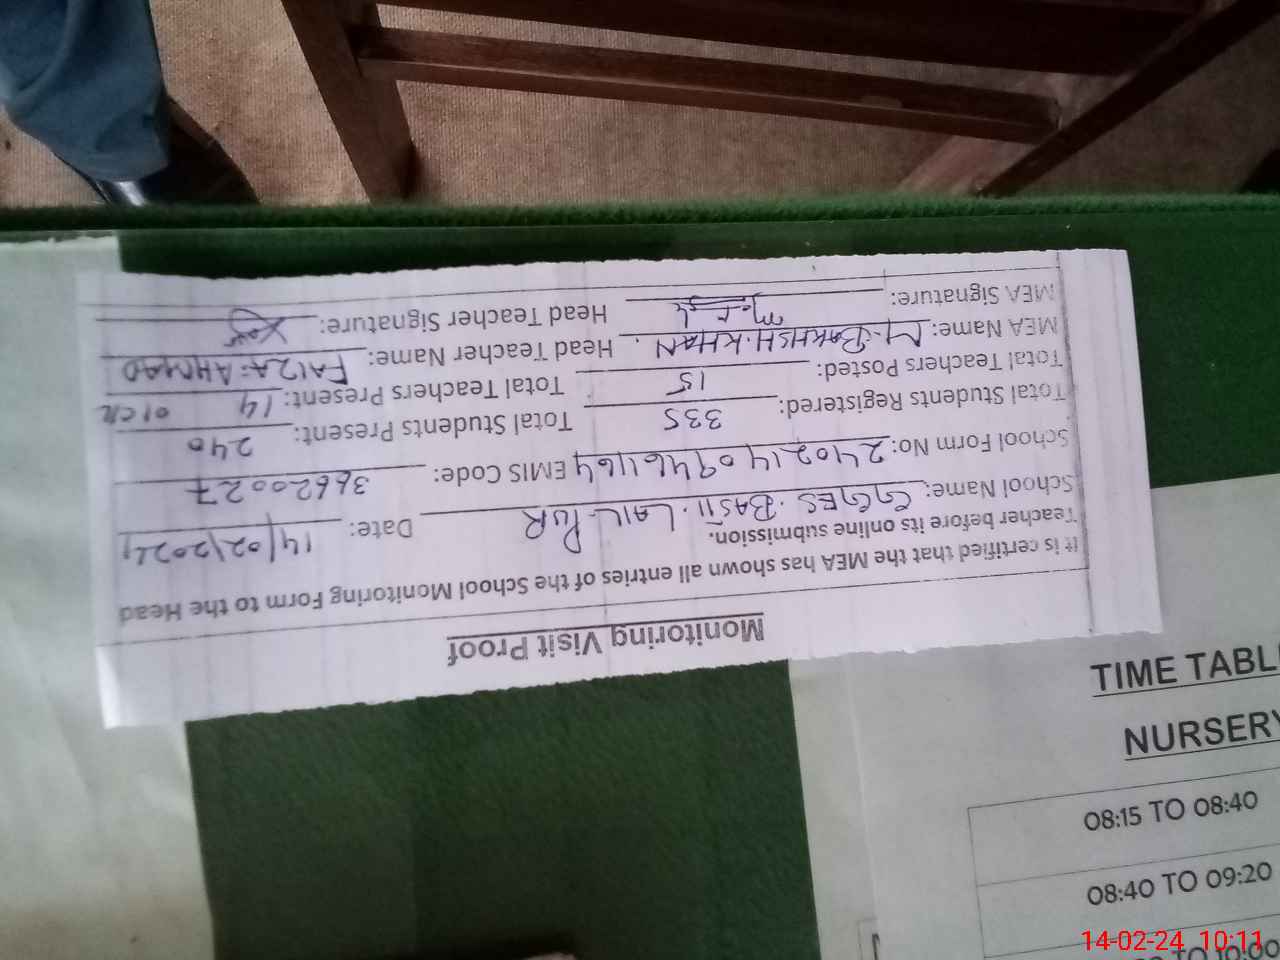 Monitoring Visit Proof
It is certified that the MEA has shown all entries of the School Monitoring Form to the Head
Teacher before its online submission.
School Name: GGES. BASTI. LAIL PUR Date: 14/02/2024
School Form No: 24021409461164 EMIS Code: 36620027
Total Students Registered: 335 Total Students Present: 240
Total Teachers Posted: 15 Total Teachers Present: 14 01CL
MEA Name: M. BAKHSH. KHAN. Head Teacher Name: FAIZA. AHMAD
MEA Signature: Head Teacher Signature:
TIME TABL
NURSERY
08:15 TO 08:40
08:40 TO 09:20
TO 10:00
14-02-24 10:11